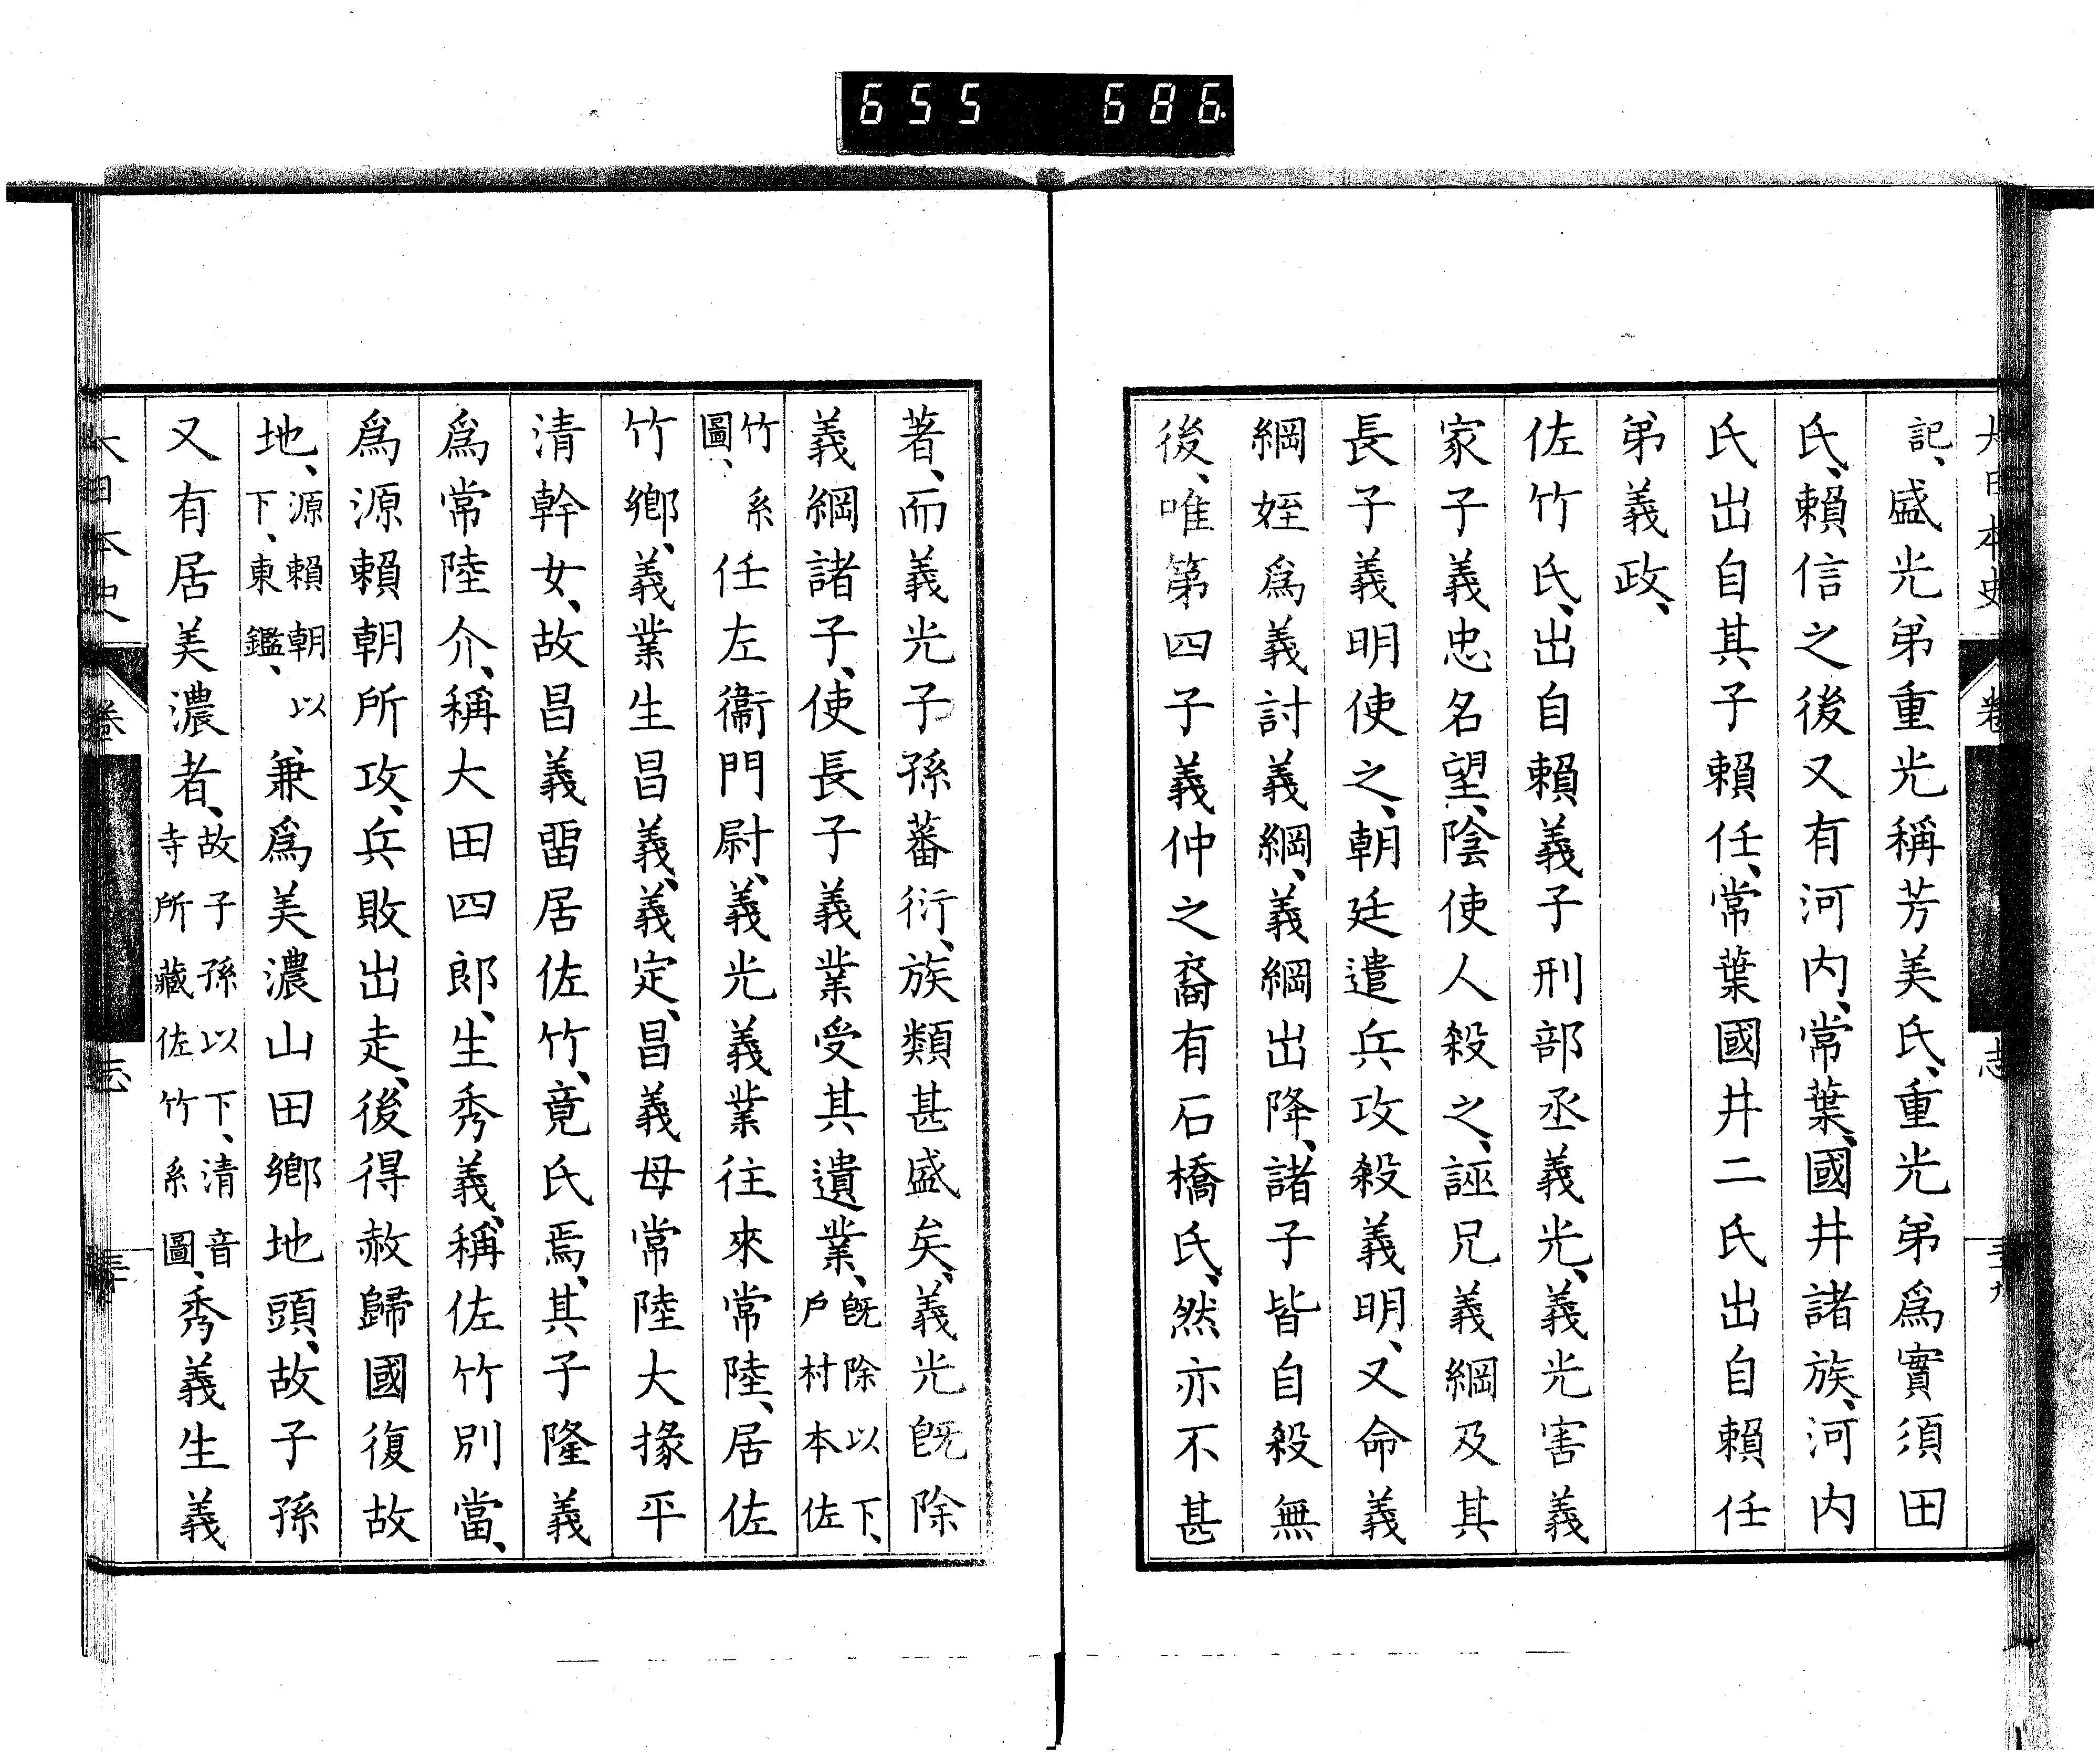 655 686
大日本史 卷 志
記、盛光弟重光稱芳美氏、重光弟爲實須田
氏、賴信之後又有河内、常葉、國井諸族、河内
氏出自其子賴任、常葉國井二氏出自賴任
弟義政、
佐竹氏、出自賴義子刑部丞義光、義光害義
家子義忠名望、陰使人殺之、誣兄義綱及其
長子義明使之、朝廷遣兵攻殺義明、又命義
綱姪爲義討義綱、義綱出降、諸子皆自殺無
後、唯第四子義仲之裔有石橋氏、然亦不甚
著、而義光子孫蕃衍、族類甚盛矣、義光既除
義綱諸子、使長子義業受其遺業、既除以下、戸村本佐
竹系圖、任左衞門尉、義光義業往來常陸、居佐
竹鄉、義業生昌義、義定、昌義母常陸大掾平
清幹女、故昌義畱居佐竹、竟氏焉、其子隆義
爲常陸介、稱大田四郎、生秀義、稱佐竹別當、
爲源賴朝所攻、兵敗出走、後得赦歸國復故
地、源賴朝以下、東鑑、兼爲美濃山田鄉地頭、故子孫
又有居美濃者、故子孫以下、清音寺所藏佐竹系圖、秀義生義
大日本史 卷 志